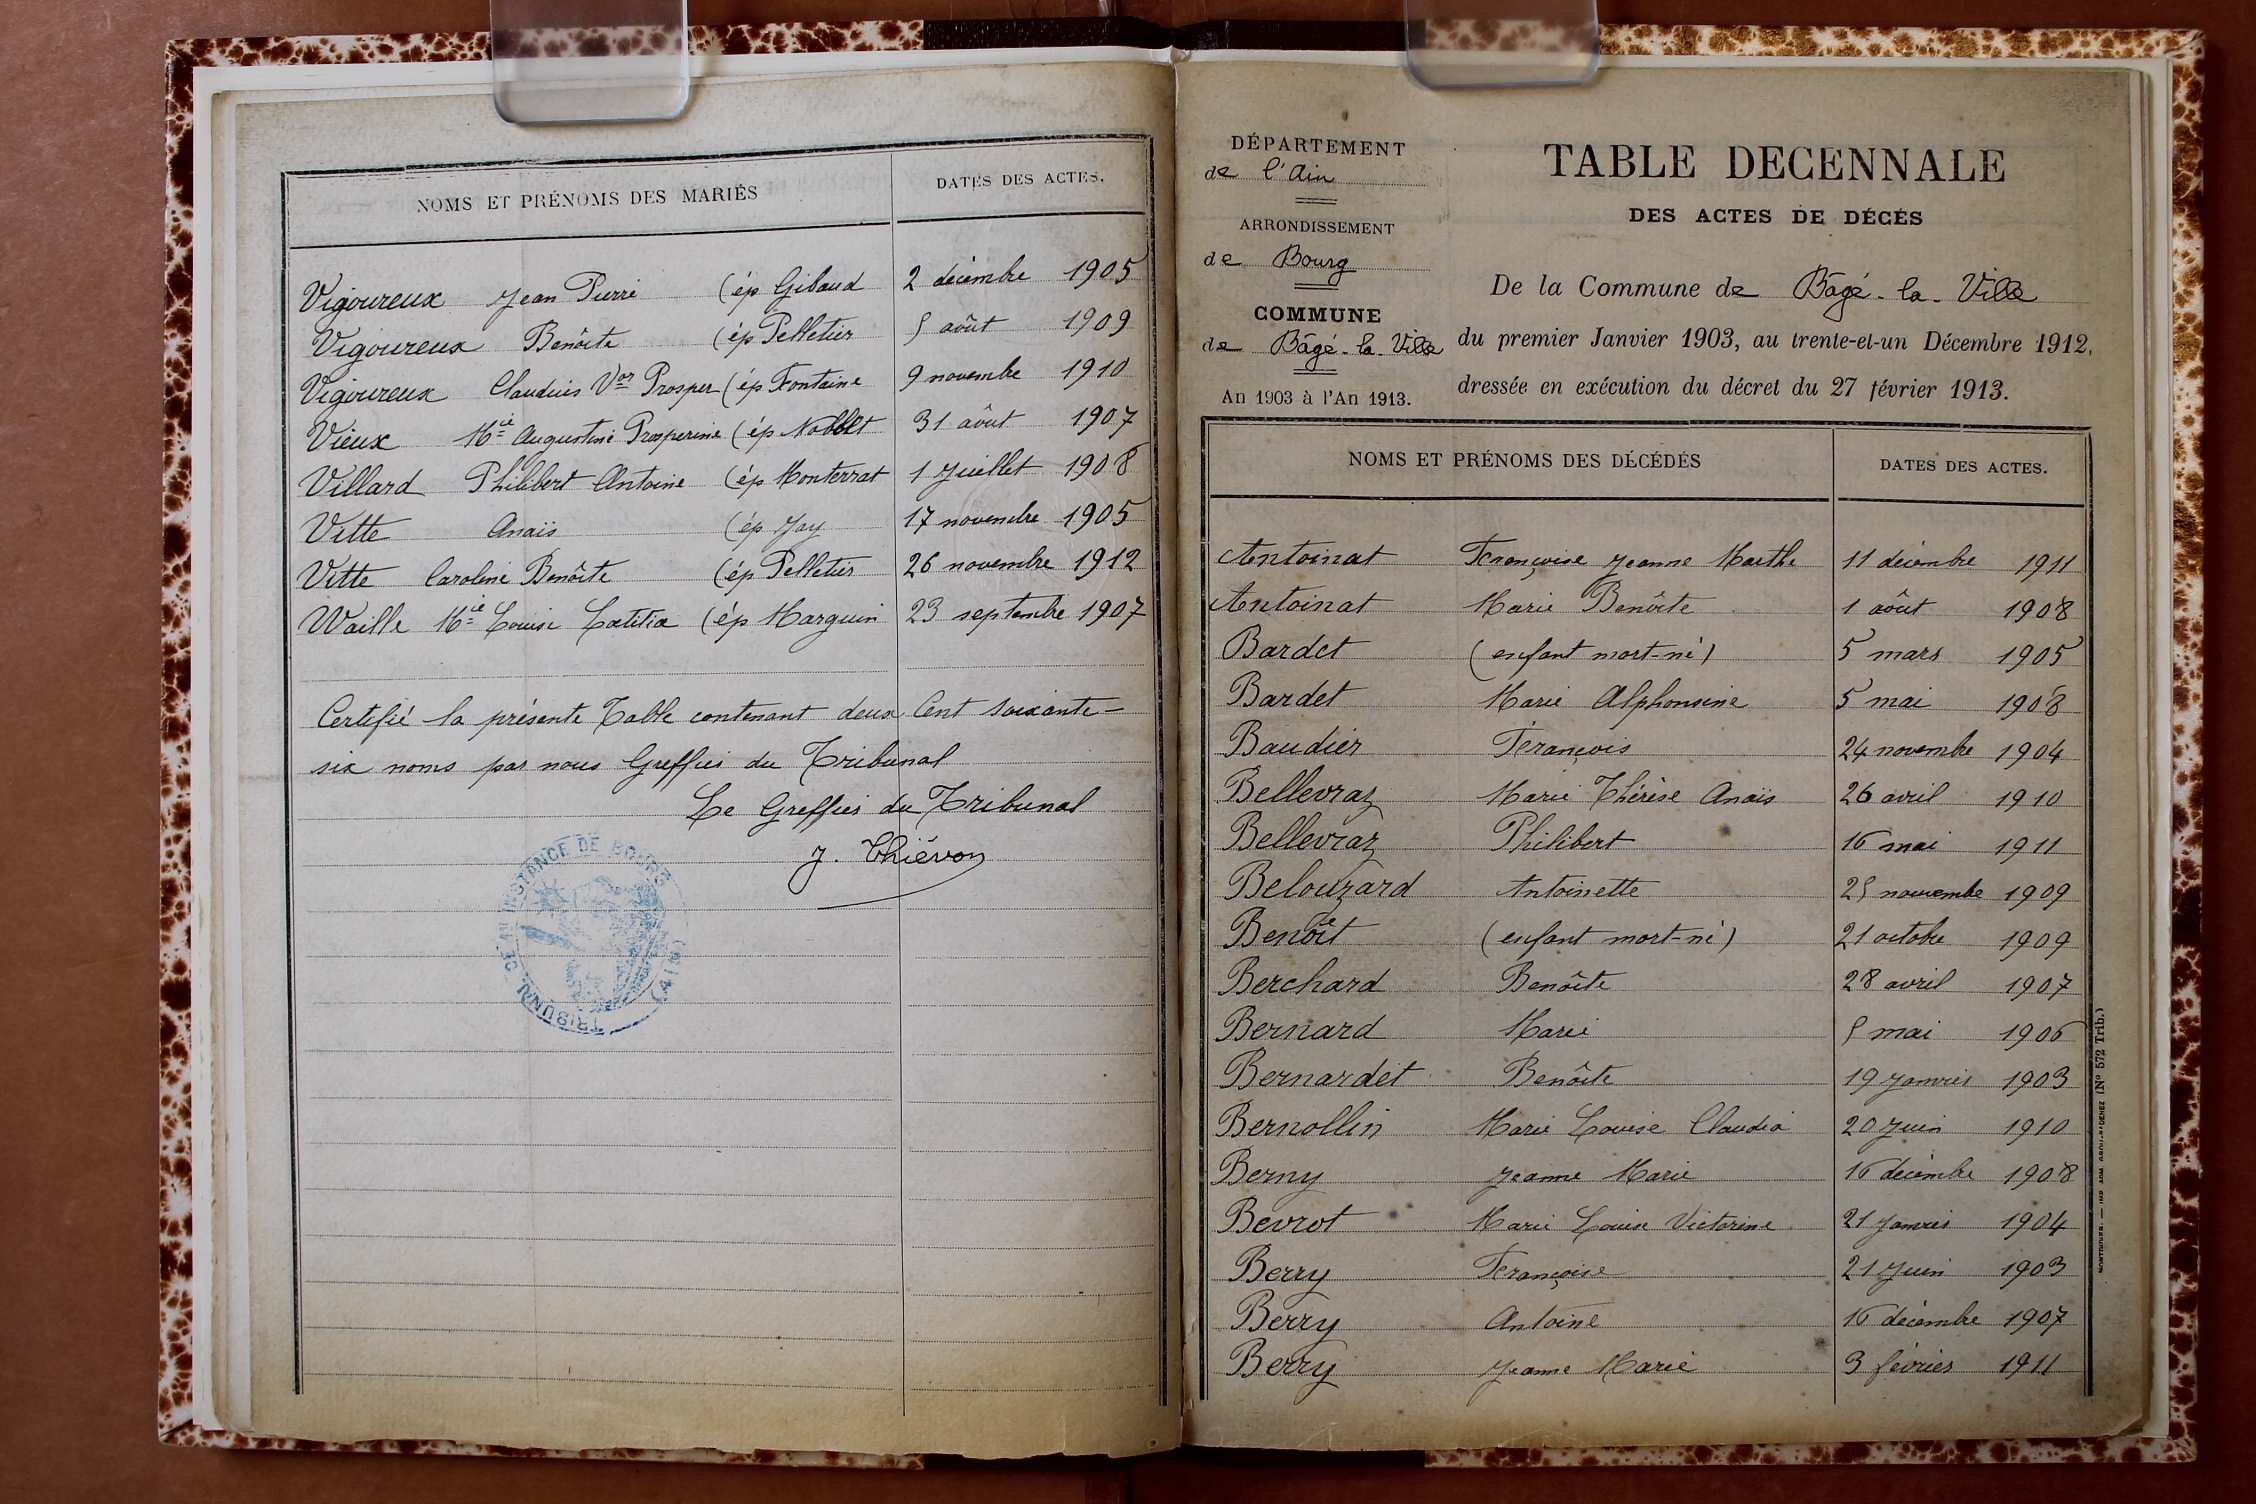 NOMS ET PRÉNOMS DES MARIÉS DATES DES ACTES.
Vigoureux Jean Pierre (ép Gibaud 2 décembre 1905
Vigoureux Benôite (ép Pelletier 5 août 1909
Vigoureux Claudius Vor Prosper (ép Fontaine 9 novembre 1910
Vieux Mie Augustine Prosperine (ép Noblet 31 août 1907
Villard Philibert Antoine (ép Monterrat 1 Juillet 1908
Vitte Anaïs (ép Jay 17 novembre 1905
Vitte Caroline Benôite (ép Pelletier 26 novembre 1912
Waille Mie Louise Lætitia (ép Marguin 23 septembre 1907
Certifié la présente Table contenant deux Cent soixante-
six noms par nous Greffier du Tribunal
Le Greffier du Tribunal
J. Thiévon
INSTANCE DE BOURG
(AIN)
TRIBUNAL DE
DÉPARTEMENT
de l'Ain
ARRONDISSEMENT
de Bourg
COMMUNE
de Bâgé-la-Ville
An 1903 à l'An 1913.
TABLE DECENNALE
DES ACTES DE DÉCÉS
De la Commune de Bâgé-la-Ville
du premier Janvier 1903, au trente-et-un Décembre 1912,
dressée en exécution du décret du 27 février 1913.
NOMS ET PRÉNOMS DES DÉCÉDÉS DATES DES ACTES.
Antoinat Françoise Jeanne Marthe 11 décembre 1911
Antoinat Marie Benôite 1 août 1908
Bardet (enfant mort-né) 5 mars 1905
Bardet Marie Alphonsine 5 mai 1908
Baudier François 24 novembre 1904
Bellevraz Marie Thérèse Anaïs 26 avril 1910
Bellevraz Philibert 16 mai 1911
Belouzard Antoinette 25 novembre 1909
Benoît (enfant mort-né) 21 octobre 1909
Berchard Benôite 28 avril 1907
Bernard Marie 5 mai 1906
Bernardet Benôite 19 Janvier 1903
Bernollin Marie Louise Claudia 20 Juin 1910
Berny Jeanne Marie 16 décembre 1908
Bevrot Marie Louise Victorine 21 Janvier 1904
Berry Françoise 21 Juin 1903
Berry Antoine 16 décembre 1907
Berry Jeanne Marie 3 février 1911
(No 572 Trib.)